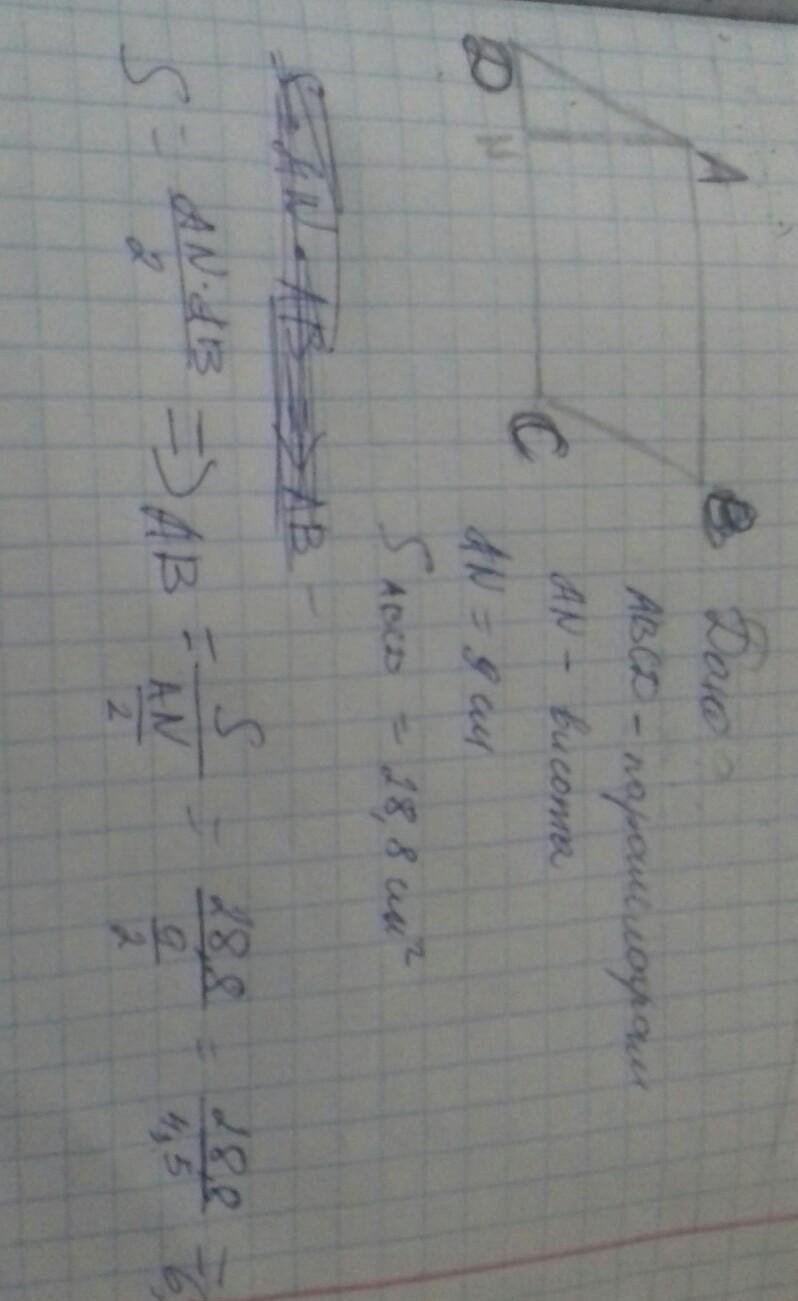 A B
D N C
Дано
ABCD - паралелограм
AN - висота
AN = 9 см
S ABCD = 28,8 см²
S = AN · AB => AB =
S = AN·AB / 2 => AB = S / (AN / 2) = 28,8 / (9 / 2) = 28,8 / 4,5 = 6,